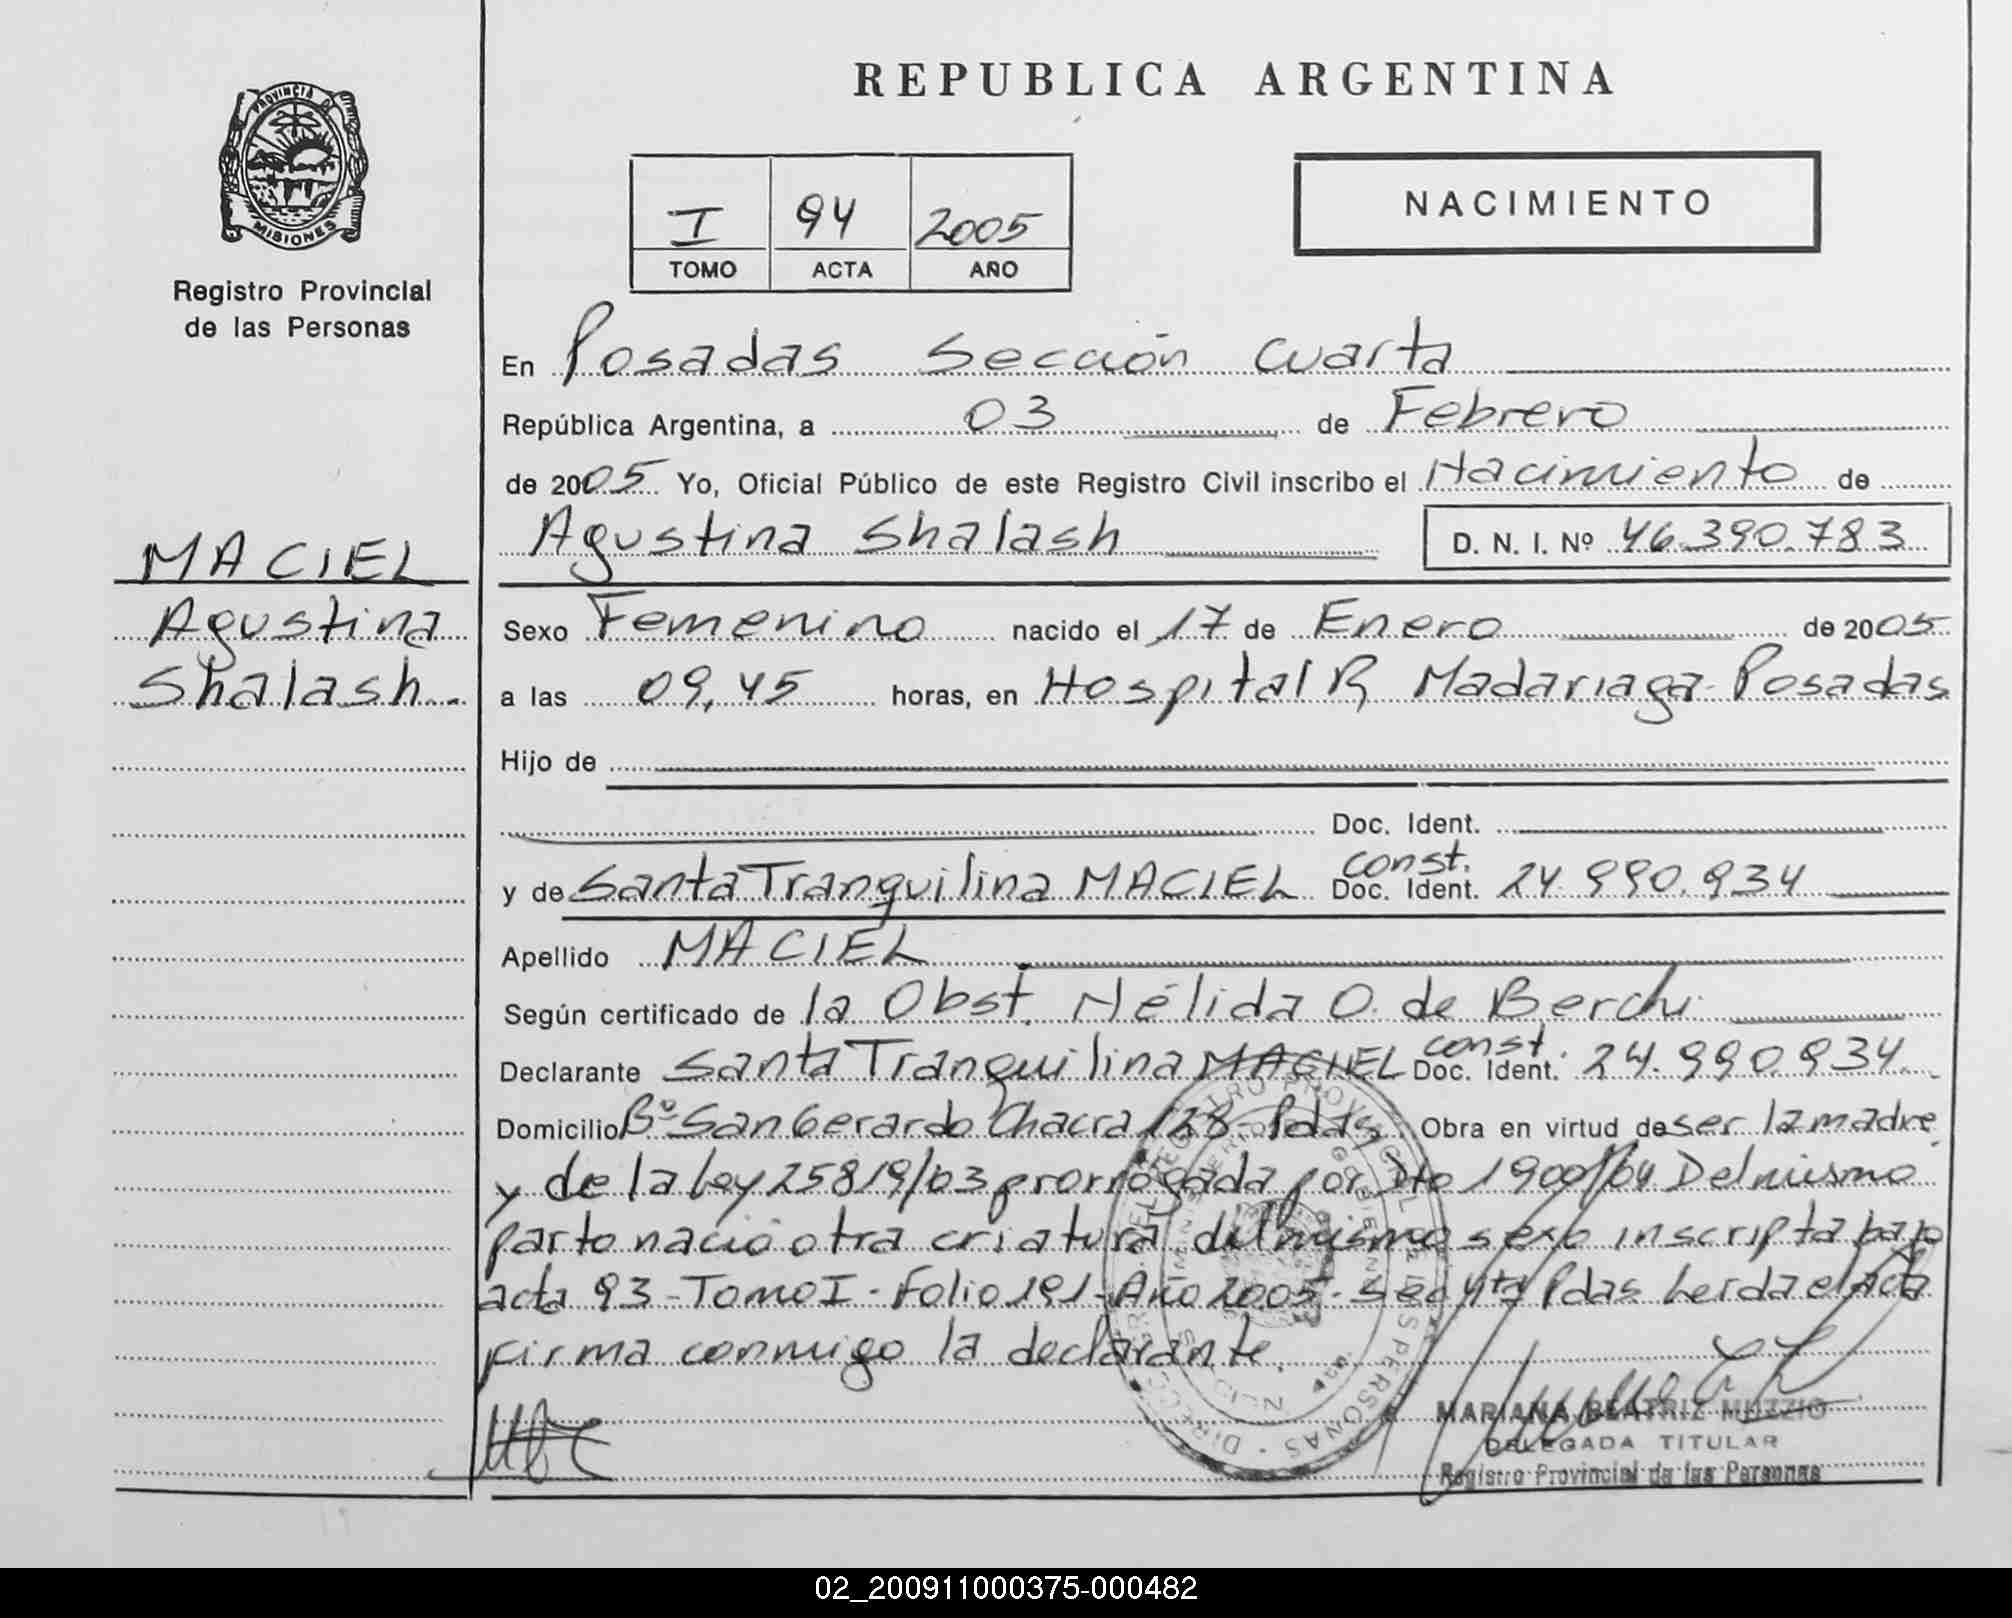 REPUBLICA ARGENTINA
PROVINCIA D
MISIONES
Registro Provincial
de las Personas
I 94 2005
TOMO ACTA AÑO
NACIMIENTO
En Posadas Sección Cuarta
República Argentina, a 03 de Febrero
de 2005 Yo, Oficial Público de este Registro Civil inscribo el Nacimiento de
Agustina Shalash D. N. I. Nº 46.390.783
MACIEL
Agustina
Shalash
Sexo Femenino nacido el 17 de Enero de 2005
a las 09,45 horas, en Hospital R. Madariaga-Posadas
Hijo de
Doc. Ident.
y de Santa Tranquilina MACIEL const. Doc. Ident. 24.990.934
Apellido MACIEL
Según certificado de la Obst. Nélida O. de Berchi
Declarante Santa Tranquilina MACIEL const. Doc. Ident. 24.990.934
Domicilio Bº San Gerardo Chacra 128-Pdas. Obra en virtud de ser la madre
y de la ley 25819/03 prorrogada por Dto 1900/04 Del mismo
parto nació otra criatura del mismo sexo inscripta bajo
acta 93-Tomo I-Folio 191-Año 2005-Sec 4ta Pdas. Leida el acta
firma conmigo la declarante.
MARIANA BEATRIZ MUZZIO
DELEGADA TITULAR
Registro Provincial de las Personas
02_200911000375-000482